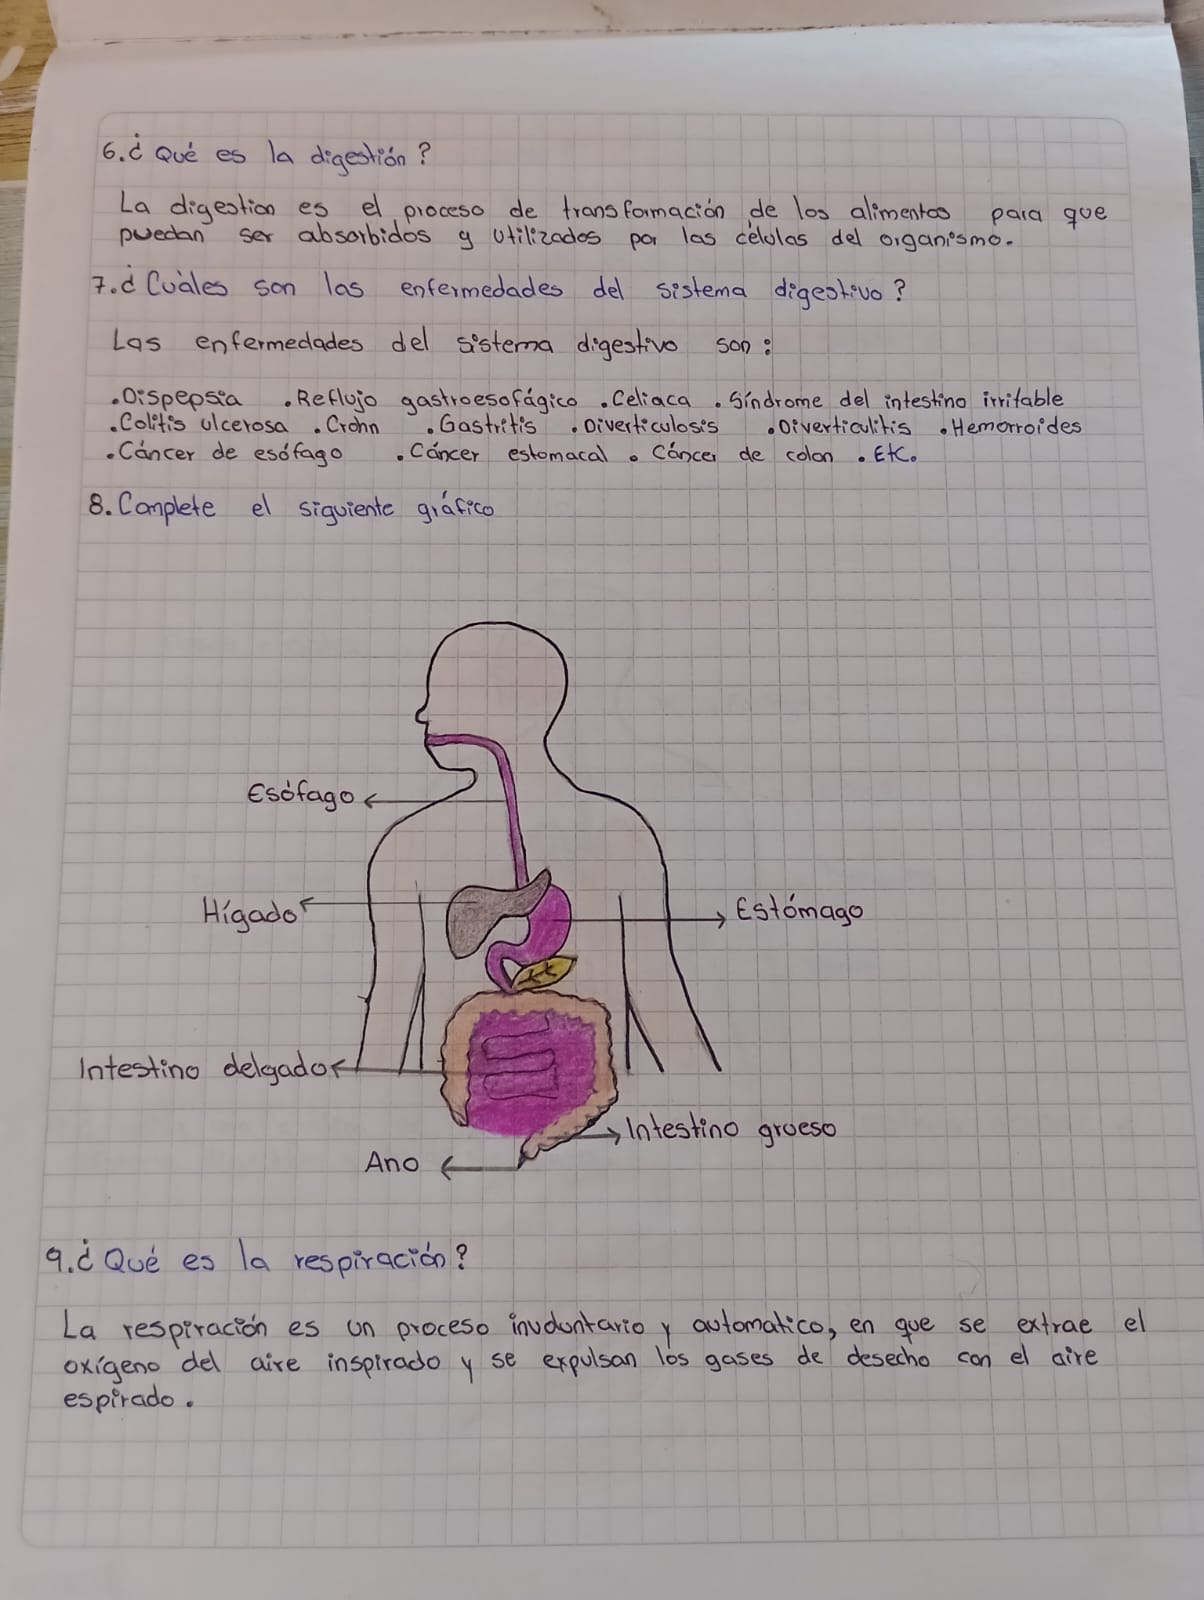 6. ¿Qué es la digestión?
La digestion es el proceso de transformación de los alimentos para que
puedan ser absorbidos y utilizados por las células del organismo.
7. ¿Cuáles son las enfermedades del sistema digestivo?
Las enfermedades del sistema digestivo son:
.Dispepsia .Reflujo gastroesofágico .Celiaca .Síndrome del intestino irritable
.Colitis ulcerosa .Crohn .Gastritis .Diverticulosis .Diverticulitis .Hemorroides
.Cáncer de esófago .Cáncer estomacal .Cáncer de colon .Etc.
8. Complete el siguiente gráfico
Esófago
Hígado
Estómago
Intestino delgado
Intestino grueso
Ano
9. ¿Qué es la respiración?
La respiración es un proceso involuntario y automatico, en que se extrae el
oxígeno del aire inspirado y se expulsan los gases de desecho con el aire
espirado.